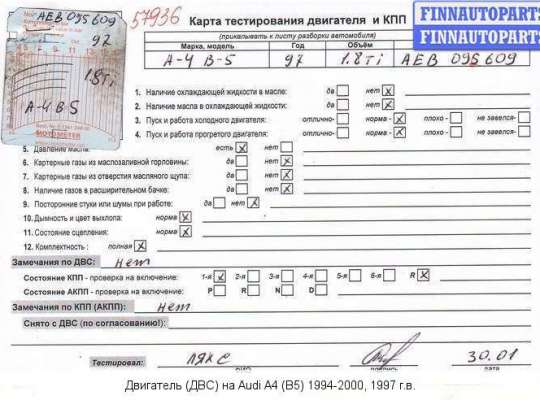 AEB 095609
97
1.8Ti
A-4 B-5
MOTOMETER
57936
Карта тестирования двигателя и КПП
(прикалывать к листу разборки автомобиля)
FINNAUTOPARTS
FINNAUTOPARTS
Марка, модель Год Объём
А-4 В-5 97 1.8Ti AEB 095609
1. Наличие охлаждающей жидкости в масле: да нет X
2. Наличие масла в охлаждающей жидкости: да нет X
3. Пуск и работа холодного двигателя: отлично- норма - X плохо - не завелся-
4. Пуск и работа прогретого двигателя: отлично- норма - X плохо - не завелся-
5. Давление масла: есть X нет
6. Картерные газы из маслозаливной горловины: да нет X
7. Картерные газы из отверстия масляного щупа: да нет X
8. Наличие газов в расширительном бачке: да нет X
9. Посторонние стуки или шумы при работе: да нет X
10. Дымность и цвет выхлопа: норма X
11. Состояние сцепления: норма X
12. Комплектность : полная X
Замечания по ДВС: нет
Состояние КПП - проверка на включение: 1-я 2-я 3-я 4-я 5-я 6-я R X
Состояние АКПП - проверка на включение: P R N D
Замечания по КПП (АКПП): нет
Снято с ДВС (по согласованию!):
Тестировал: ЛЯХС 30.01
Двигатель (ДВС) на Audi A4 (B5) 1994-2000, 1997 г.в.